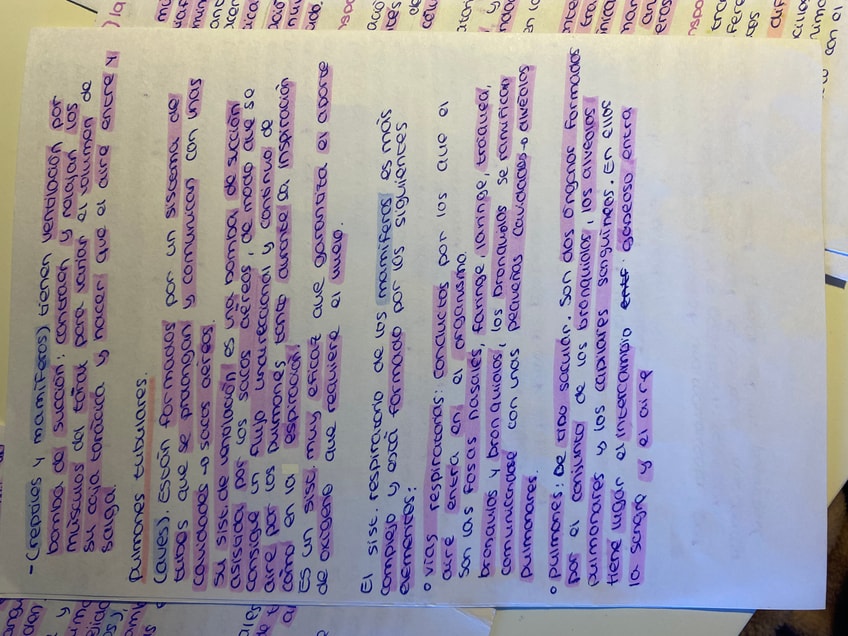 - (reptiles y mamíferos) tienen ventilación por
bomba de succión: contraen y relajan los
músculos del total para variar el volumen de
su caja torácica y hacer que el aire entre y
salga.
Pulmones tubulares.
(aves). Están formados por un sistema de
tubos que se prolongan y comunican con unas
cavidades → sacos aéreos.
Su sist. de ventilación es una bomba de succión
asistida por los sacos aéreos, de modo que se
consigue un flujo unidireccional y continuo de
aire por los pulmones tanto durante la inspiración
como en la espiración.
Es un sist. muy eficaz que garantiza el aporte
de oxígeno que requiere el vuelo.
El sist. respiratorio de los mamíferos es más
complejo y está formado por los siguientes
elementos:
o vías respiratorias: conductos por los que el
aire entra en el organismo.
Son las fosas nasales, faringe, laringe, tráquea,
bronquios y bronquiolos; los bronquiolos se ramifican
comunicándose con unas pequeñas cavidades → alvéolos
pulmonares.
o pulmones: De tipo sacular. Son dos órganos formados
por el conjunto de los bronquiolos, los alveolos
pulmonares y los capilares sanguíneos. En ellos
tiene lugar el intercambio gaseoso entre
la sangre y el aire